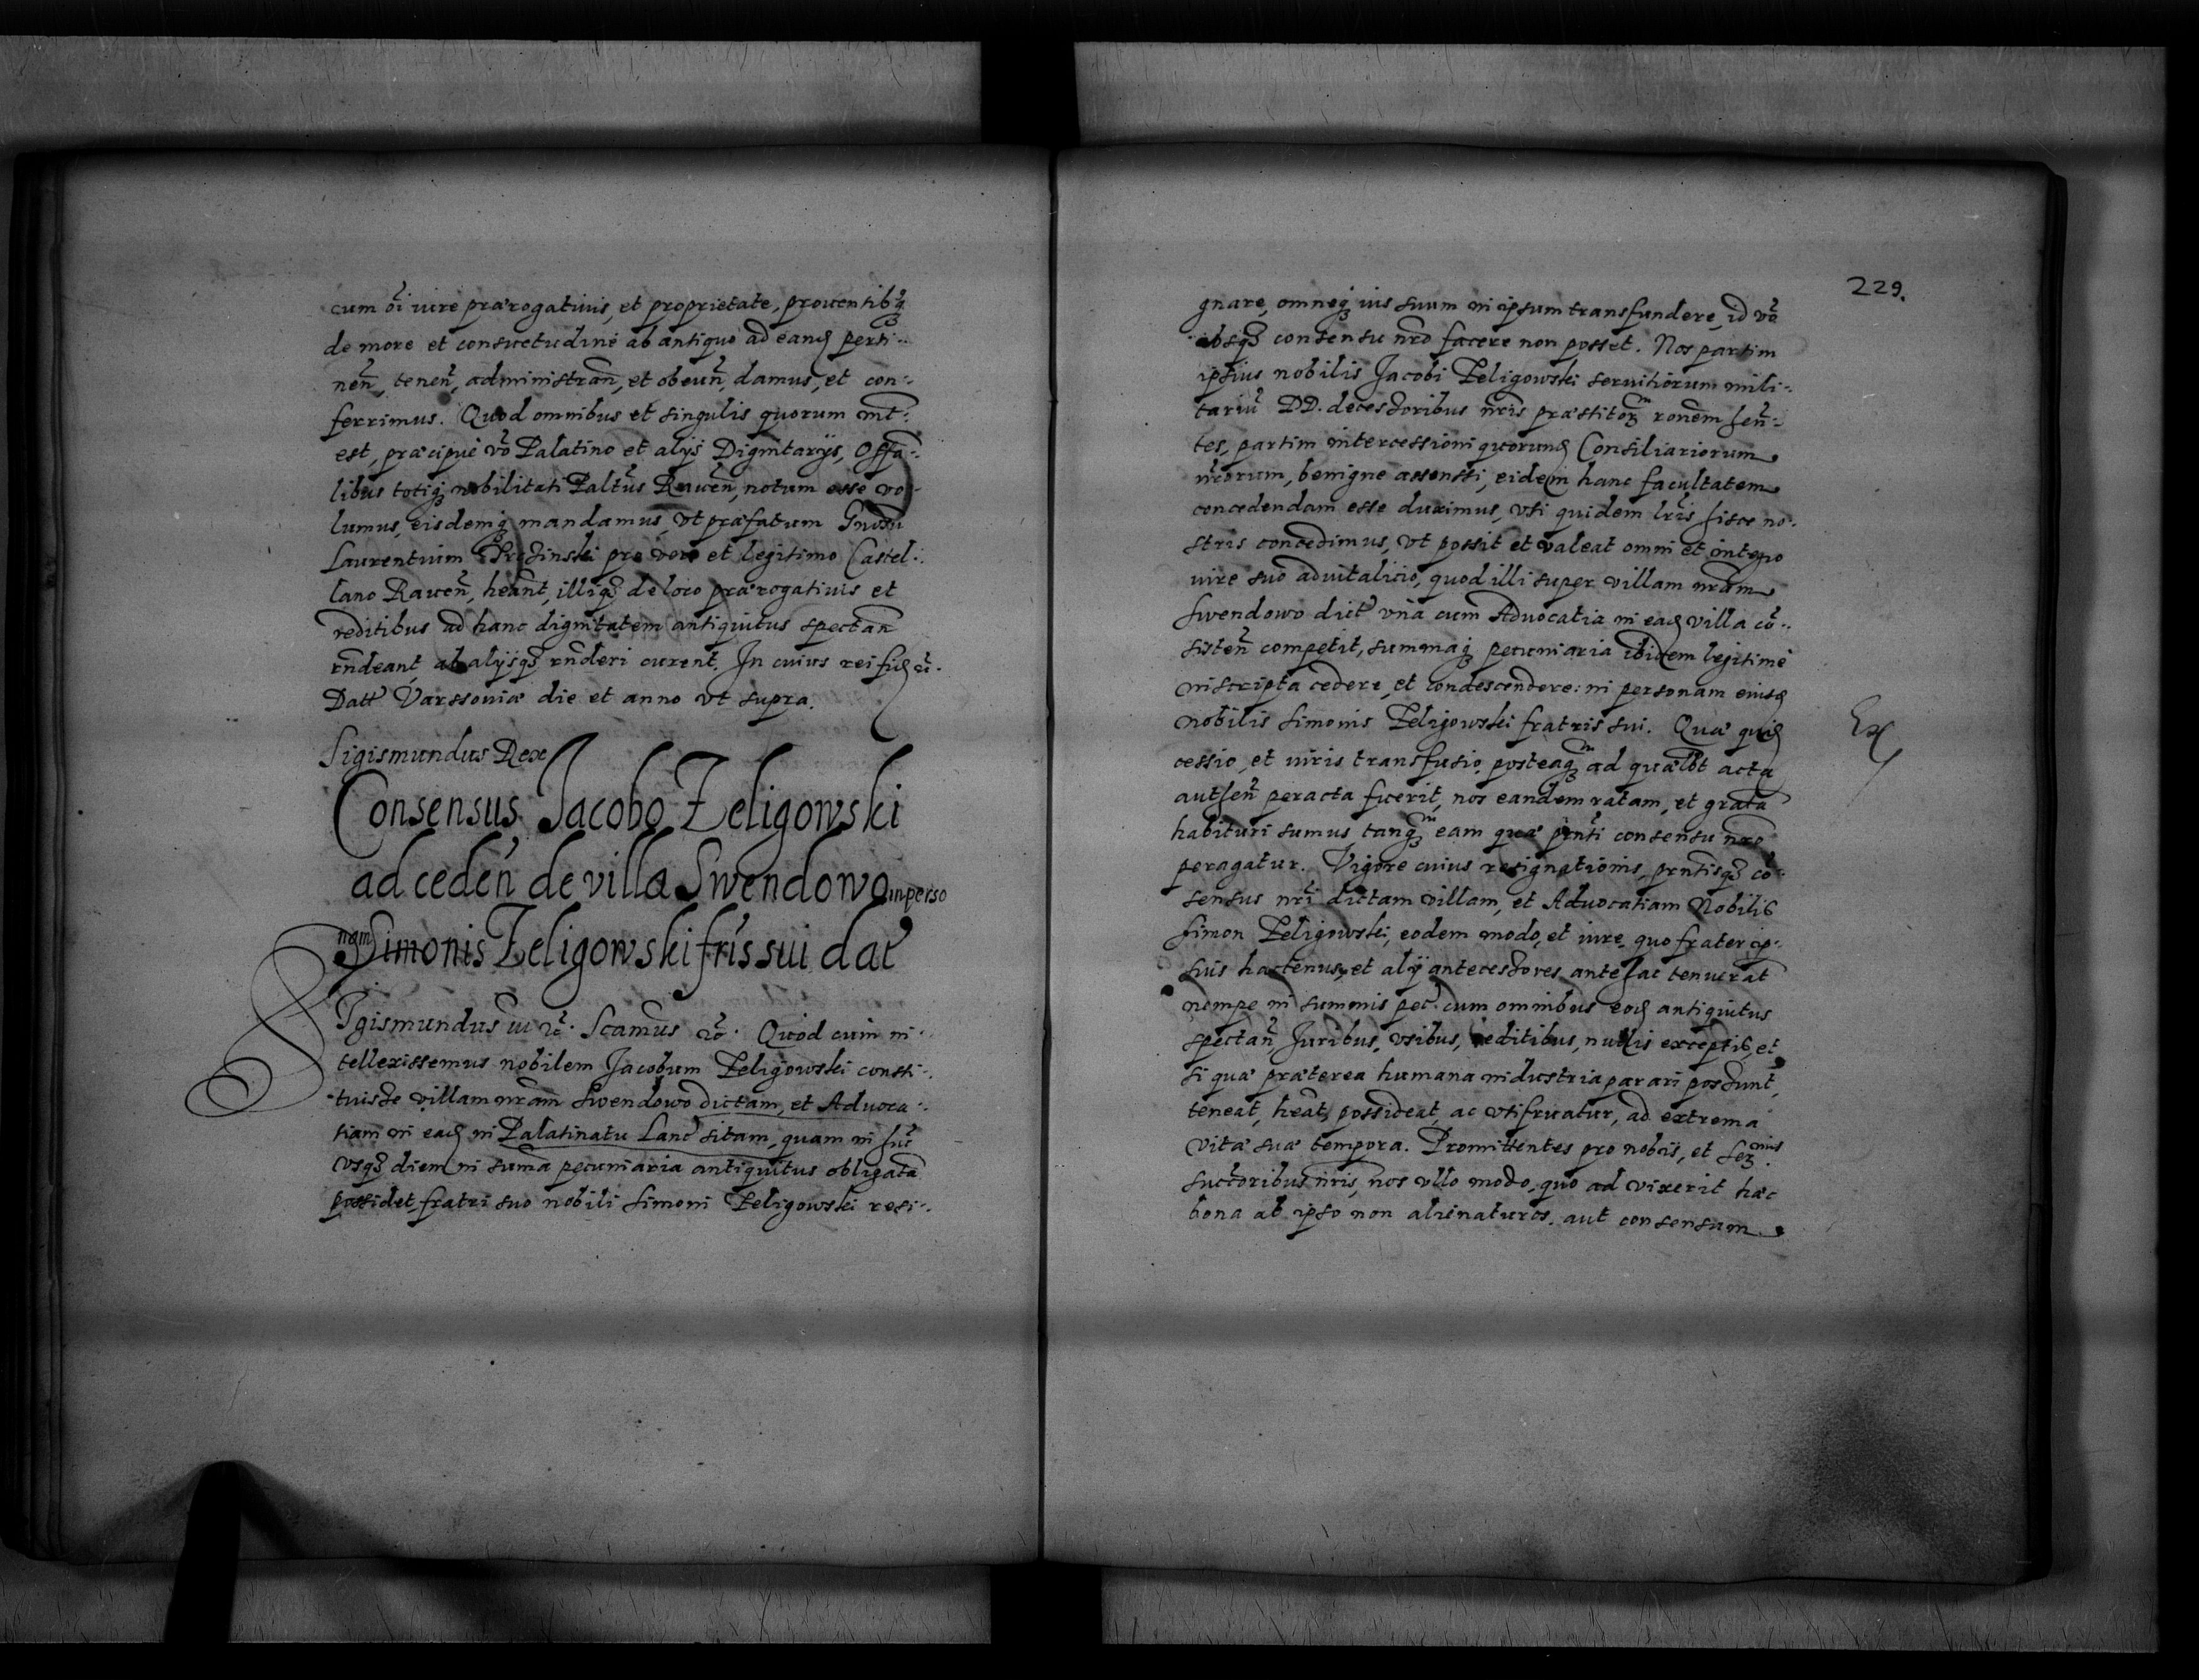 cum õi iure prærogatiuis, et proprietate, prouentibq̃
de more et consuetudine ab antiquo ad eand perti-
neñ, teneñ, administrañ, et obeuñ, damus, et con-
ferrimus. Quod omnibus et singulis quorum int-
est, præcipuè võ Palatino et alijs Dignitarijs, Offa-
libus totiq; nobilitati Paltũs Raueñ, notum esse vo-
lumus, eisdemq; mandamus, vt præfatum Gnosũ
Laurentium pro vero et legitimo Castel-
lano Raueñ, heãnt, illiq; de loco prærogatiuis et
reditibus ad hanc dignitatem antiquitus spectañ
rñdeant, ab alijsq; rñderi curent. In cuius rei fid ic̃.
Datt Varssouiæ die et anno vt supra.
Sigismundus Rex
Consensus Jacobo Zeligowski
ad cedeñ de villa Swendowo in perso
nam Simonis Zeligowski fris sui dat
Sigismundus iii ic̃. Scamus ic̃. Quod cum in-
tellexissemus nobilem Jacobum Zeligowski consti-
tuisse villam nram Swendowo dictam, et Aduoca-
tiam in ead in Palatinatu Lanc̃ sitam, quam in huc̃
vsq; diem in suma pecuniaria antiquitus obligatã
possidet, fratri suo nobili Simoni Zeligowski resi-
229.
gnare, omneq; ius suum in ipsum transfundere, id võ
absq; consensu nrõ facere non posset. Nos partim
ipsius nobilis Jacobi Zeligowski seruitiorum mili-
tariũ DD. decessoribus nr̃is præstitoꝝ ronem heñ-
tes, partim intercessioni quorund Consiliariorum
nrorum, benigne assensi, eidem hanc facultatem
concedendam esse duximus, vti quidem lris hisce no-
stris concedimus, vt possit et valeat omni et integro
iure suo aduitalicio, quod illi super villam nram
Swendowo dict vna cum Aduocatia in ead villa cõ-
sisteñ competit, summaq; pecuniaria ibidem legitimè
inscripta cedere, et condescendere: in personam eiusd
nobilis Simonis Zeligowski fratris sui. Quæ quid
Ex
cessio, et iuris transfusio, posteaq;m ad quælbt acta
autheñ peracta fuerit, nos eandem ratam, et gratã
habituri sumus tanq;m eam quæ prñti consensu nro
peragatur. Vigore cuius resignationis, prñtisq; cõ-
sensus nri dictam villam, et Aduocatiam Nobilis
Simon Zeligowski, eodem modo, et iure, quo frater ip-
sius hactenus, et alij antecessores antehac tenuerãt
nempe in summis pec. cum omnibus eod antiquitus
spectañ, Juribus, vsibus, reditibus, nullis exceptis, et
si quæ præterea humana industria parari possunt,
teneat, heãt, possideat, ac vtifruatur, ad extrema
vitæ suæ tempora. Promittentes pro nobis, et Serminis
suctoribus nr̃is, nos vllo modo, quo ad vixerit hæc
bona ab ipso non alienaturos, aut consensum